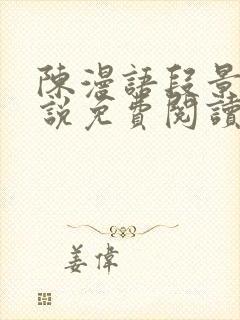 陳漫語段景
說免費閱讀
姜偉